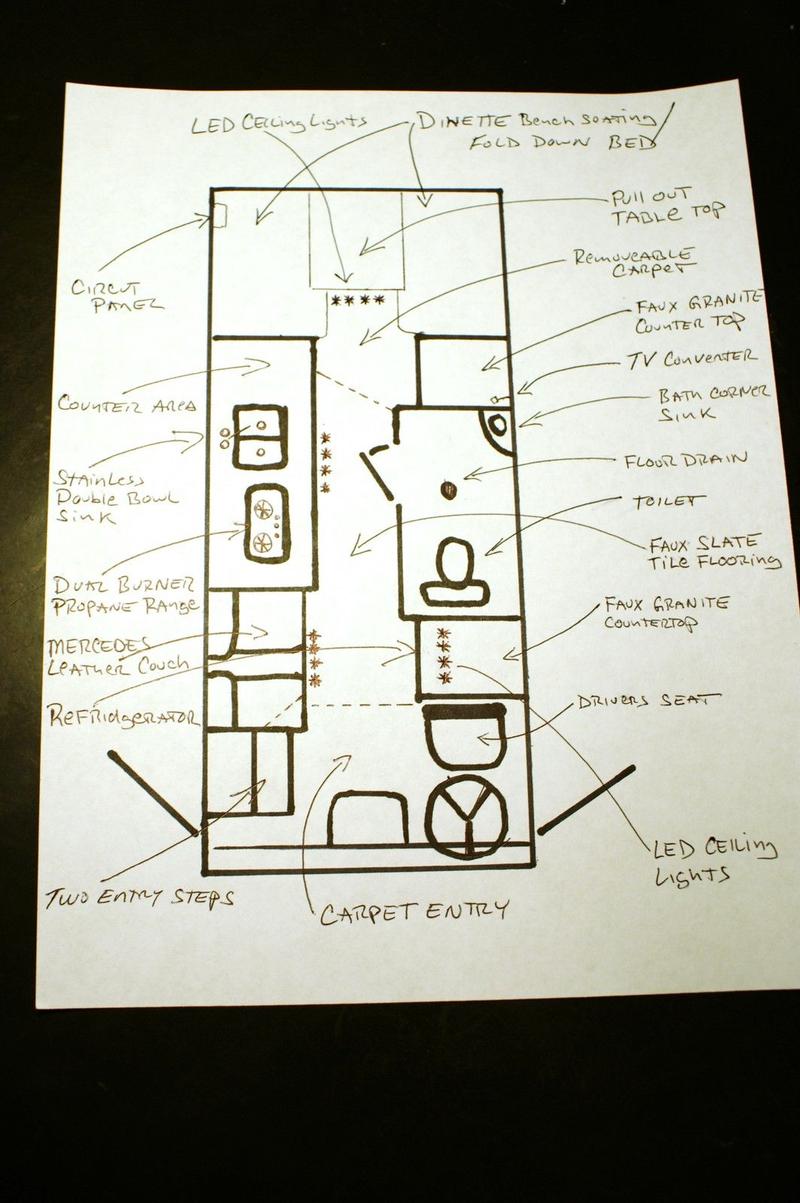 LED CEILING LIGHTS
DINETTE BENCH SOATING/
FOLD DOWN BED
PULL OUT
TABLE TOP
REMOVEABLE
CARPET
CIRCUT
PANEL
FAUX GRANITE
COUNTER TOP
TV CONVERTER
BATH CORNER
SINK
COUNTER AREA
FLOOR DRAIN
STAINLESS
DOUBLE BOWL
SINK
TOILET
FAUX SLATE
TILE FLOORING
DUAL BURNER
PROPANE RANGE
FAUX GRANITE
COUNTERTOP
MERCEDES
LEATHER COUCH
REFRIDGERATOR
DRIVERS SEAT
LED CEILING
LIGHTS
TWO ENTRY STEPS
CARPET ENTRY